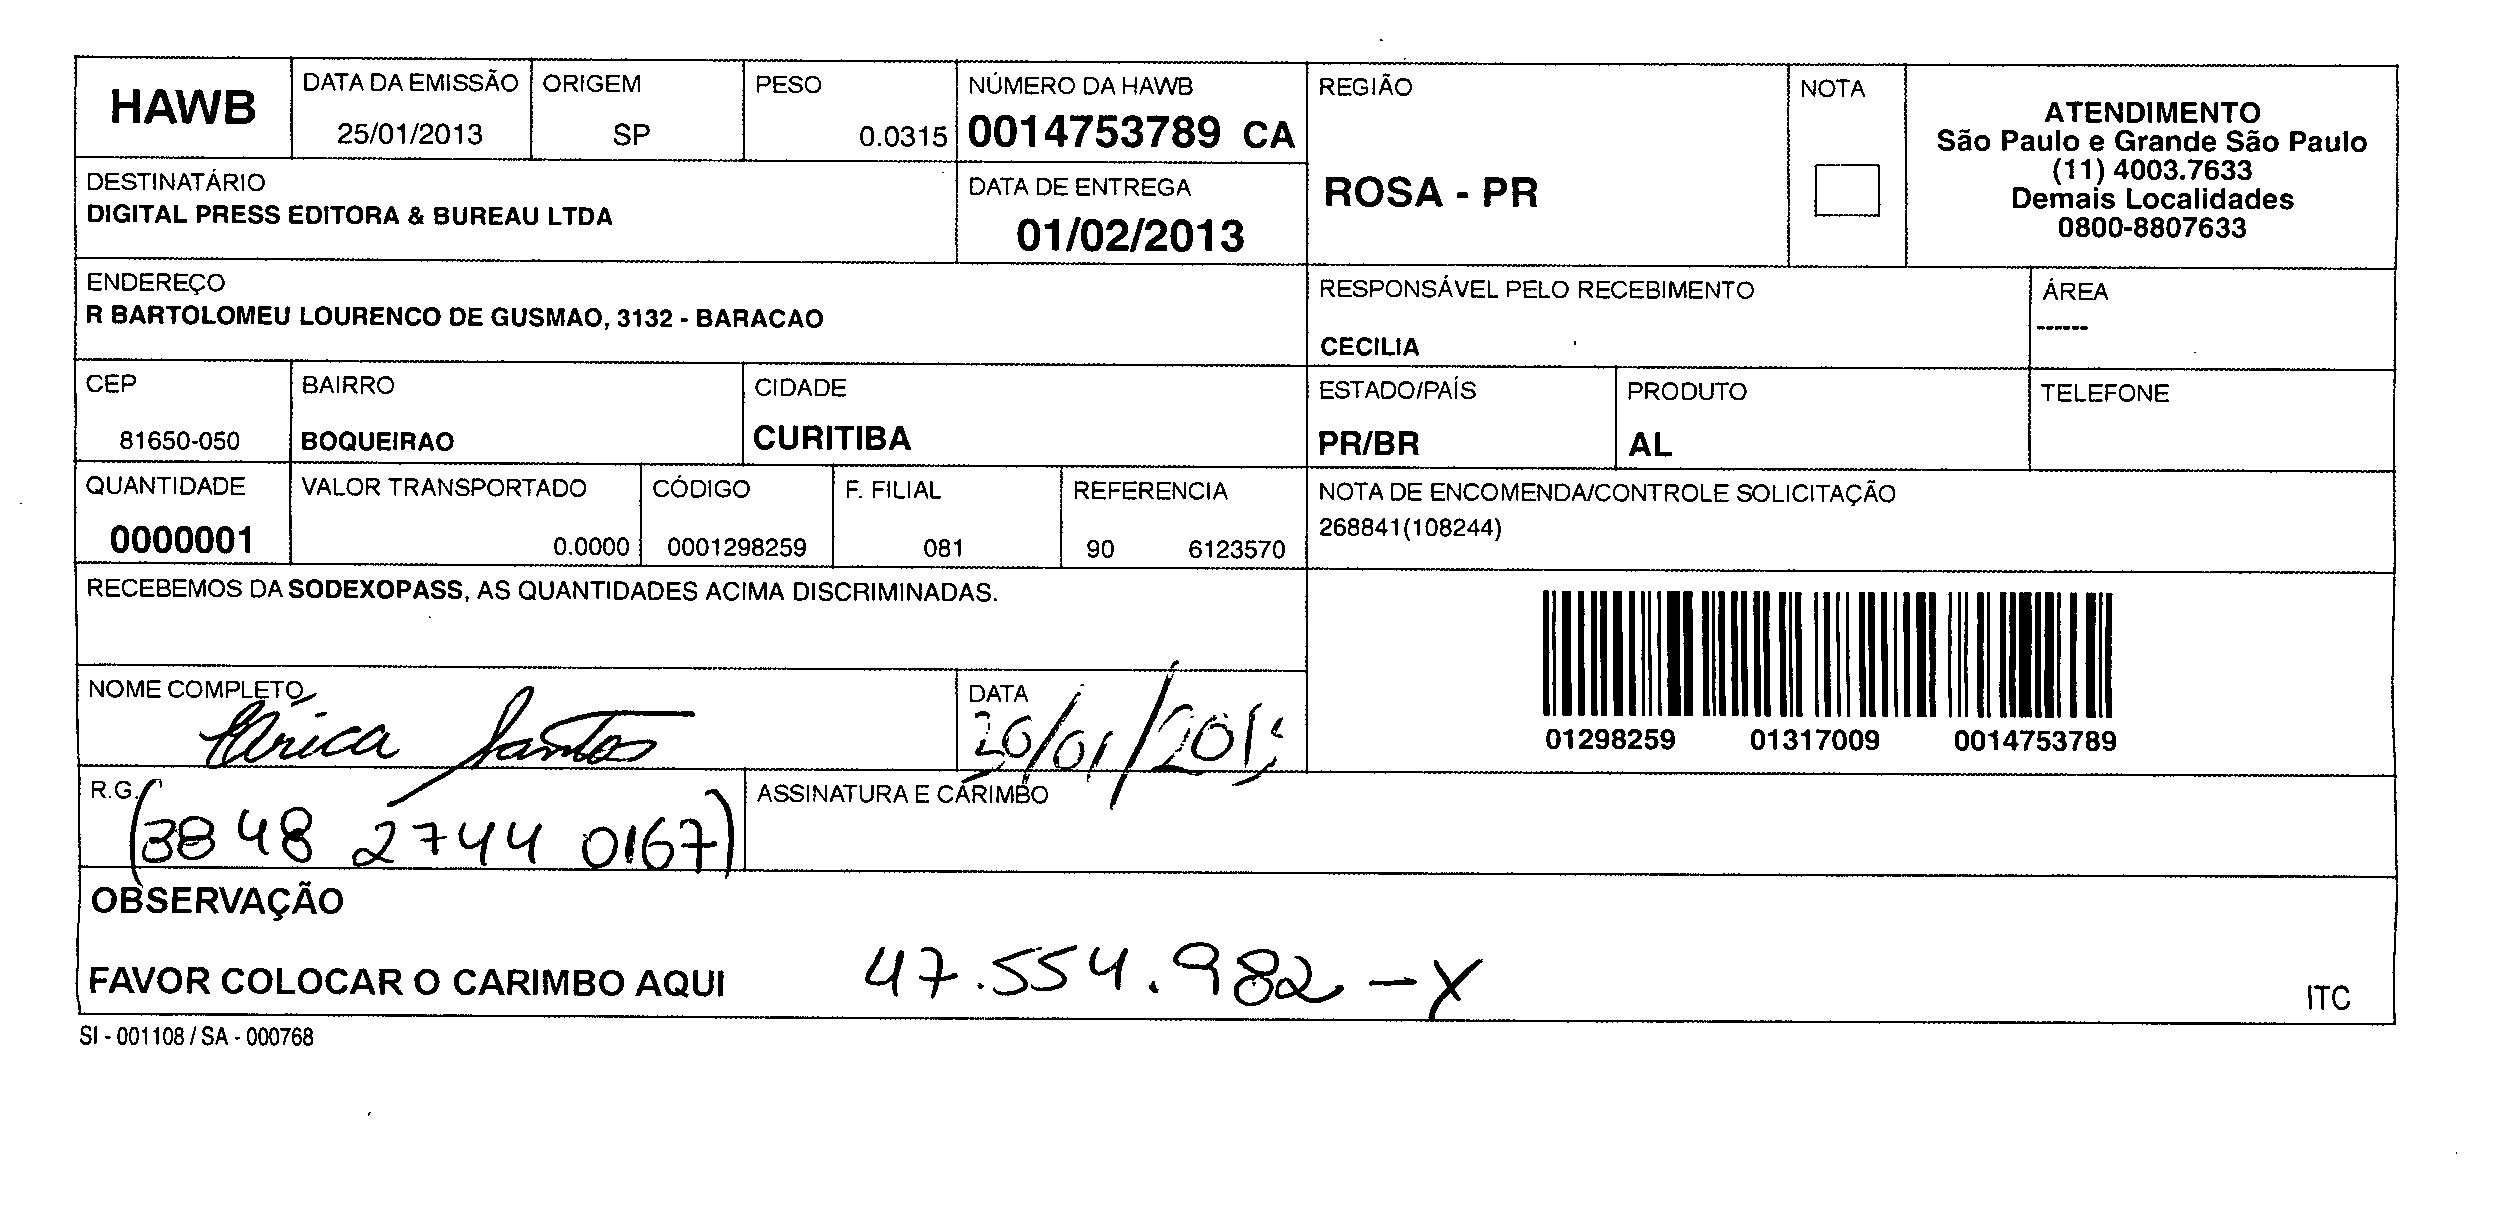 HAWB
DATA DA EMISSÃO
25/01/2013
ORIGEM
SP
PESO
0.0315
NÚMERO DA HAWB
0014753789 CA
REGIÃO
ROSA - PR
NOTA
ATENDIMENTO
São Paulo e Grande São Paulo
(11) 4003.7633
Demais Localidades
0800-8807633
DESTINATÁRIO
DIGITAL PRESS EDITORA & BUREAU LTDA
DATA DE ENTREGA
01/02/2013
ENDEREÇO
R BARTOLOMEU LOURENCO DE GUSMAO, 3132 - BARACAO
RESPONSÁVEL PELO RECEBIMENTO
CECILIA
ÁREA
------
CEP
81650-050
BAIRRO
BOQUEIRAO
CIDADE
CURITIBA
ESTADO/PAÍS
PR/BR
PRODUTO
AL
TELEFONE
QUANTIDADE
0000001
VALOR TRANSPORTADO
0.0000
CÓDIGO
0001298259
F. FILIAL
081
REFERENCIA
90 6123570
NOTA DE ENCOMENDA/CONTROLE SOLICITAÇÃO
268841(108244)
RECEBEMOS DA SODEXOPASS, AS QUANTIDADES ACIMA DISCRIMINADAS.
01298259 01317009 0014753789
NOME COMPLETO
Santos
DATA
R.G.
(3848 2744 0167)
ASSINATURA E CARIMBO
OBSERVAÇÃO
FAVOR COLOCAR O CARIMBO AQUI
47.554.982-X
ITC
SI - 001108 / SA - 000768